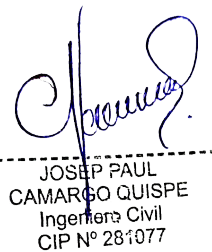 JOSEP PAUL
CAMARGO QUISPE
Ingeniero Civil
CIP Nº 281077